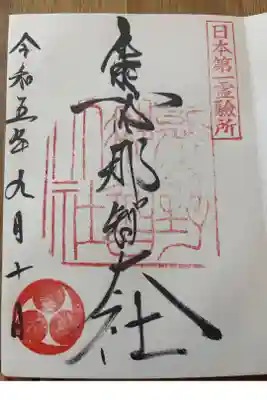 日本第一霊驗所
熊野那智大社
令和五年九月十日